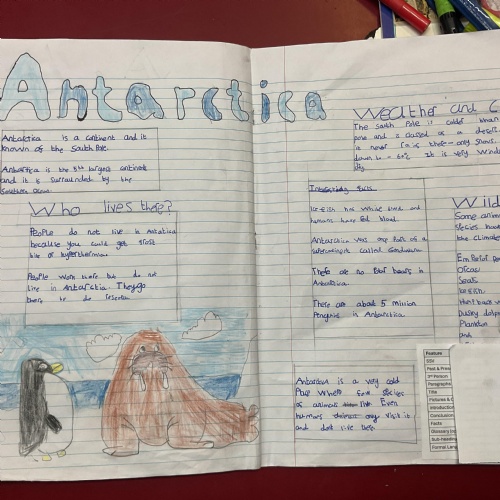 Antarctica
Antarctica is a continent and it
known of the South Pole.
Antarctica is the 5th largest continent
and it is surrounded by the
Southern Ocean.
Who lives there?
People do not live in Antarctica
because you could get frost
bite or hypothermia.
People work there but do not
live in Antarctica. They go
there to do
Weather and C
The South Pole is colder than
and is classed as a desert
it never rains there only snows.
down to - It is very wind
Interesting facts
Ice fish has white blood and
humans have red blood.
Antarctica was once part of a
called Gondwana.
There are no Polar bears in
Antarctica.
There are about 5 million
Penguins in Antarctica.
Wild
Some anim
Species have
the climate
Emperor Pen
Orcas
Seals
Ice fish
Humpback w
Dusky dolph
Plankton
and
Antarctica is a very cold
Place where few Species
of animals live. Even
humans only visit it
and dont live there.
Feature
SSV
Past & Pres
3rd Person
Paragraphs
Title
Pictures & C
Introduction
Conclusion
Facts
Glossary
Sub-heading
Formal Lang